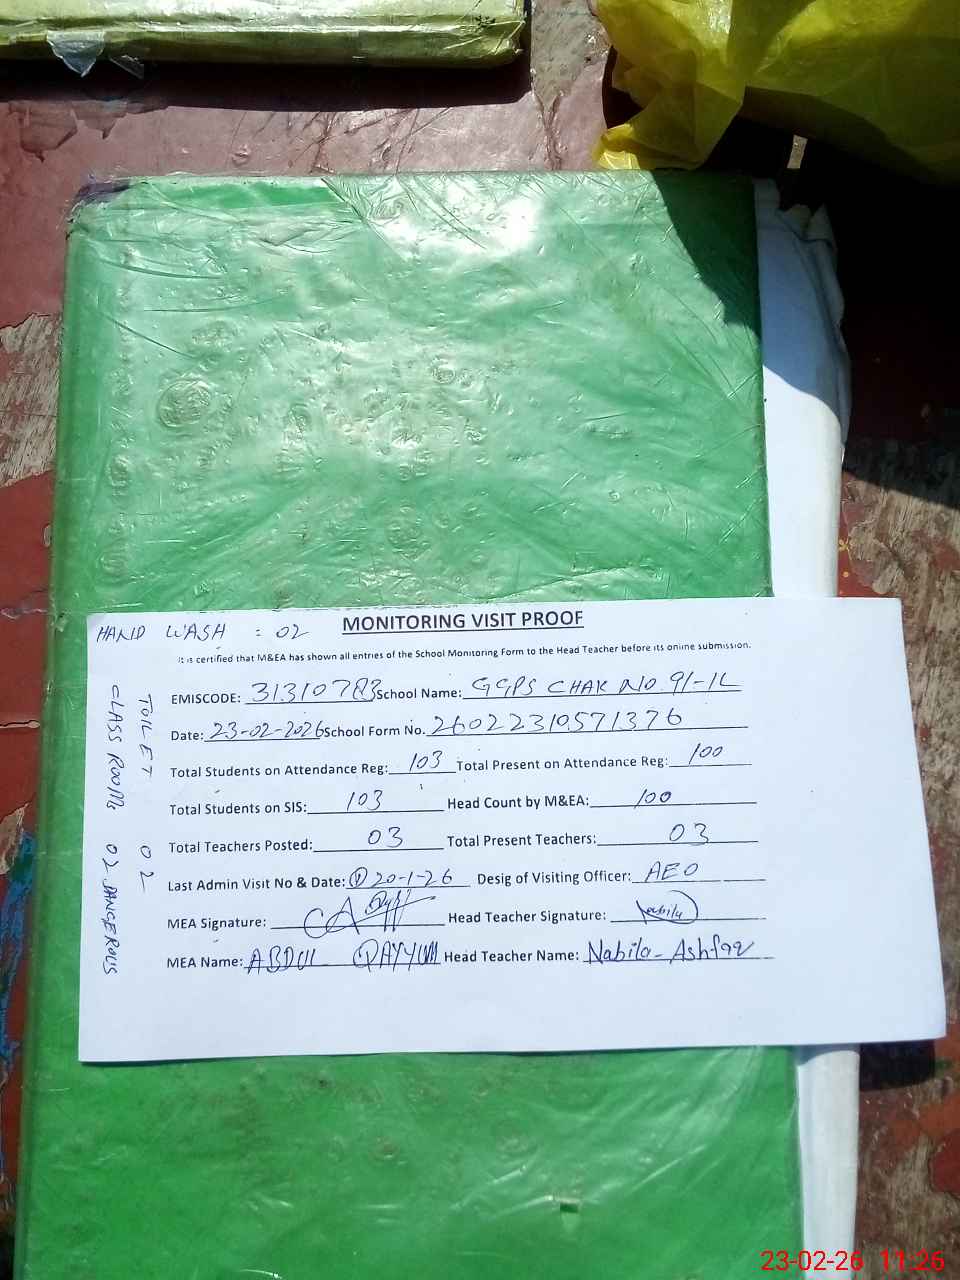 HAND WASH : 02
MONITORING VISIT PROOF
It is certified that M&EA has shown all entries of the School Monitoring Form to the Head Teacher before its online submission.
EMISCODE: 31310783 School Name: GGPS CHAK NO. 91-1L
Date: 23-02-2026 School Form No. 26022310571376
Total Students on Attendance Reg: 103 Total Present on Attendance Reg: 100
Total Students on SIS: 103 Head Count by M&EA: 100
Total Teachers Posted: 03 Total Present Teachers: 03
Last Admin Visit No & Date: (1) 20-1-26 Desig of Visiting Officer: AEO
MEA Signature: Head Teacher Signature: Nabila
MEA Name: ABDUL QAYYUM Head Teacher Name: Nabila-Ashfaq
TOILET 02
CLASS ROOM 02 DANGEROUS
23-02-26 11:26